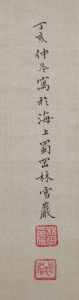 丁亥仲冬寫於海上蜀岡林雪巖